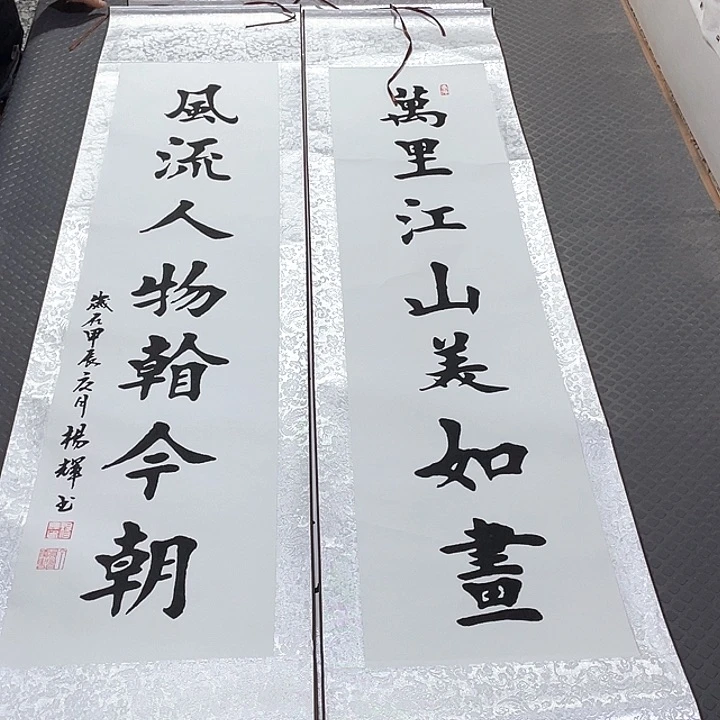 萬里江山美如畫
風流人物看今朝
歲在甲辰夏月楊輝書